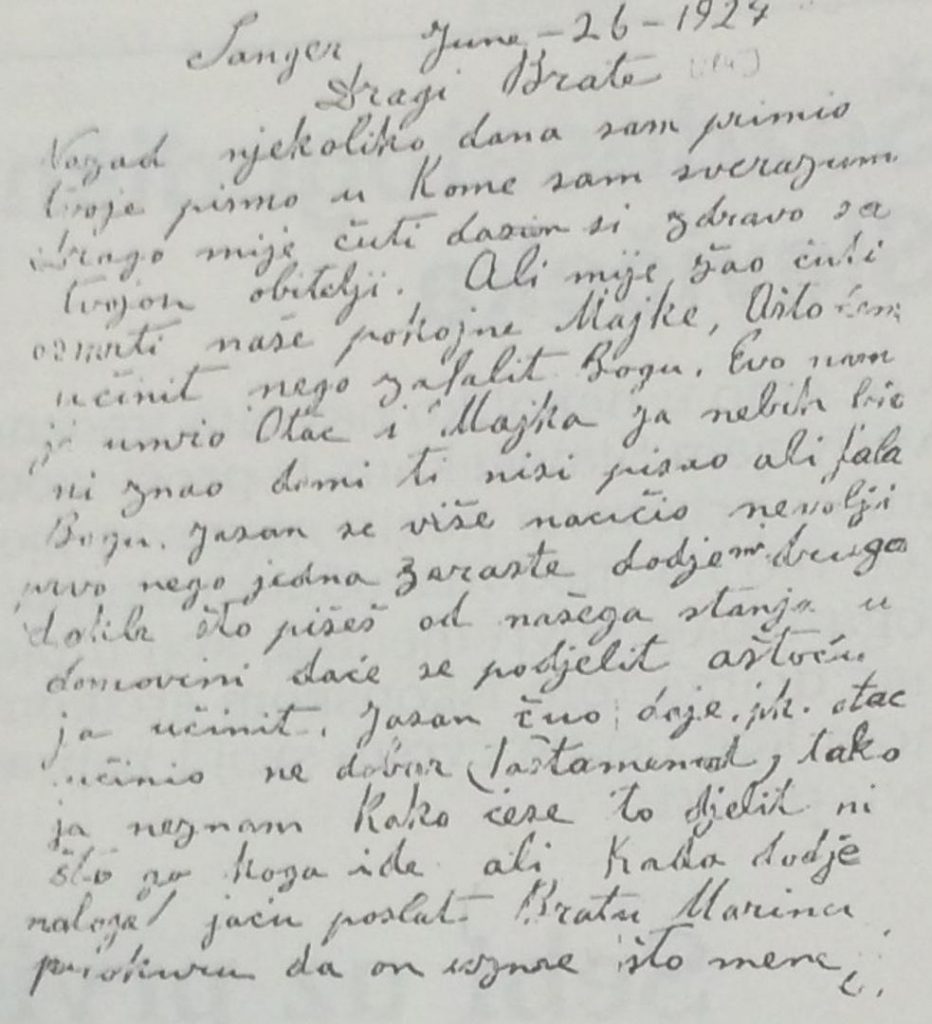 Sanger June - 26 - 1927
Dragi Brate
Nazad njekoliko dana sam primio
tvoje pismo u Kome sam sverazumi
idrago mije čuti dasan si zdravo sa
tvojon obitelji. Ali mije žao čuti
osmrti naše pokojne Majke, Ašto ćemo
učinit nego zafalit Bogu. Evo nam
je umrio Otac i Majka ja nebih bio
ni znao dami ti nisi pisao ali fala
Bogu. Jasan se više naučio nevolji
prvo nego jedna zaraste dodje druga
što pišeš od našega stanja u
domovini daće se podjelit aštoću
ja učinit. Jasan čuo daje. pk. otac
učinio ne dobar taštamenat, tako
ja neznam Kako ćese to djelit ni
što za koga ide ali Kada dodje
naloga jaću poslat Bratu Marinu
prokuru da on uzme što mene